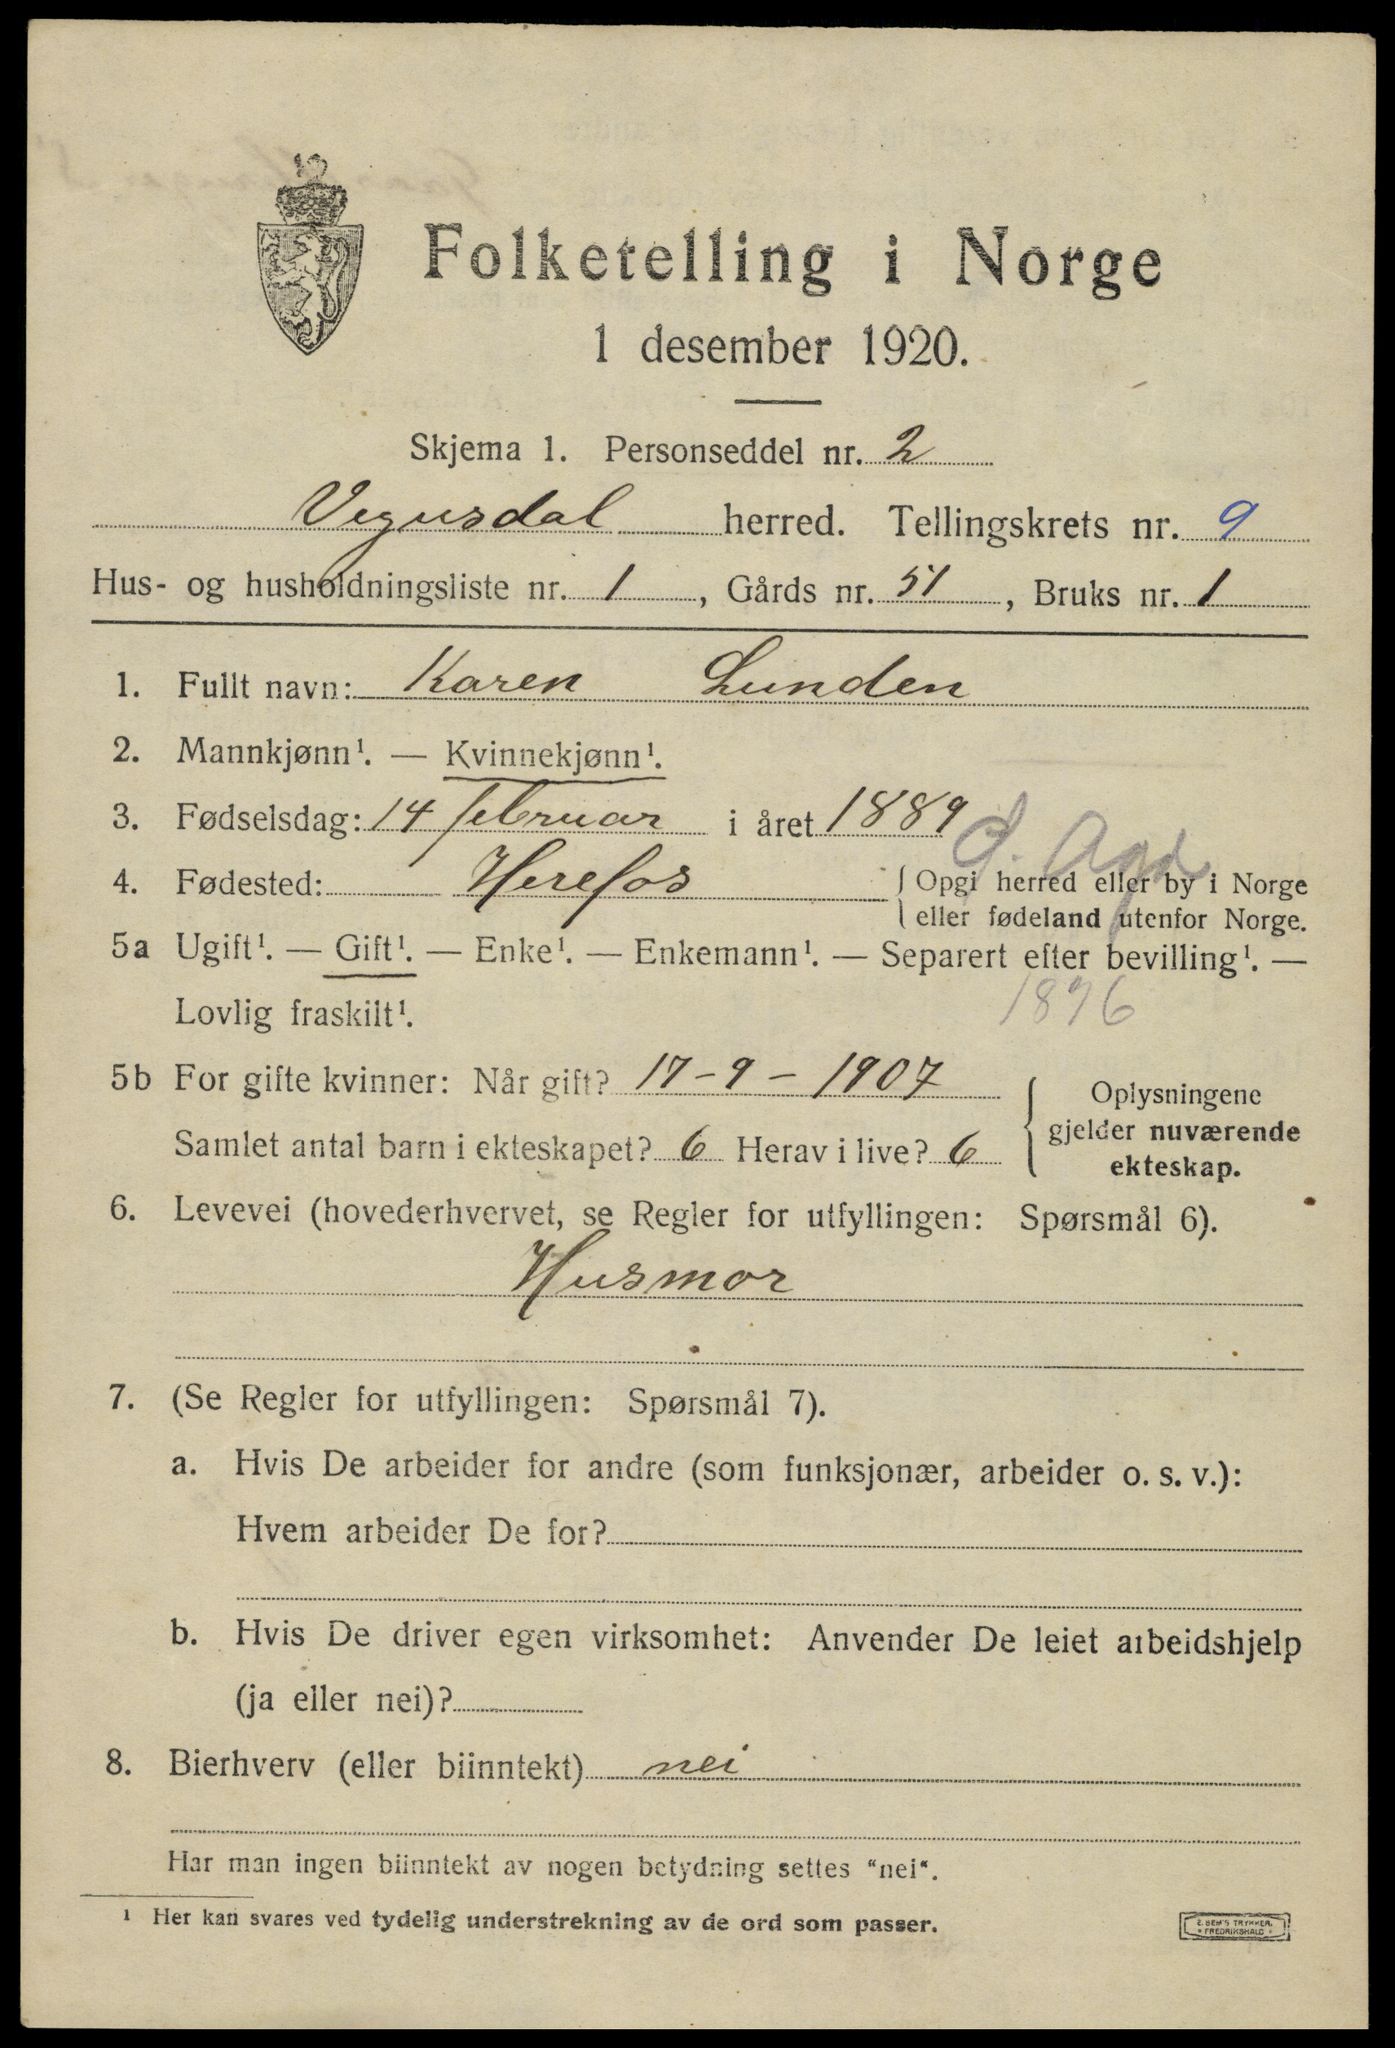 Folketelling i Norge
1 desember 1920.
Skjema 1. Personseddel nr. 2
Vegusdal herred. Tellingskrets nr. 9
Hus- og husholdningsliste nr. 1, Gårds nr. 51, Bruks nr. 1
1. Fullt navn: Karen Lunden
2. Mannkjønn¹. — Kvinnekjønn¹.
3. Fødselsdag: 14 februar i året 1889
4. Fødested: Herefos { Opgi herred eller by i Norge
eller fødeland utenfor Norge.
5a Ugift¹. — Gift¹. — Enke¹. — Enkemann¹. — Separert efter bevilling¹. —
Lovlig fraskilt¹.
5b For gifte kvinner: Når gift? 17-9-1907
Samlet antal barn i ekteskapet? 6 Herav i live? 6
{ Oplysningene
gjelder nuværende
ekteskap.
6. Levevei (hovederhvervet, se Regler for utfyllingen: Spørsmål 6).
Husmor
7. (Se Regler for utfyllingen: Spørsmål 7).
a. Hvis De arbeider for andre (som funksjonær, arbeider o. s. v.):
Hvem arbeider De for?
b. Hvis De driver egen virksomhet: Anvender De leiet arbeidshjelp
(ja eller nei)?
8. Bierhverv (eller biinntekt) nei
Har man ingen biinntekt av nogen betydning settes “nei“.
¹ Her kan svares ved tydelig understrekning av de ord som passer.
E. SEM'S TRYKKERI,
FREDRIKSHALD